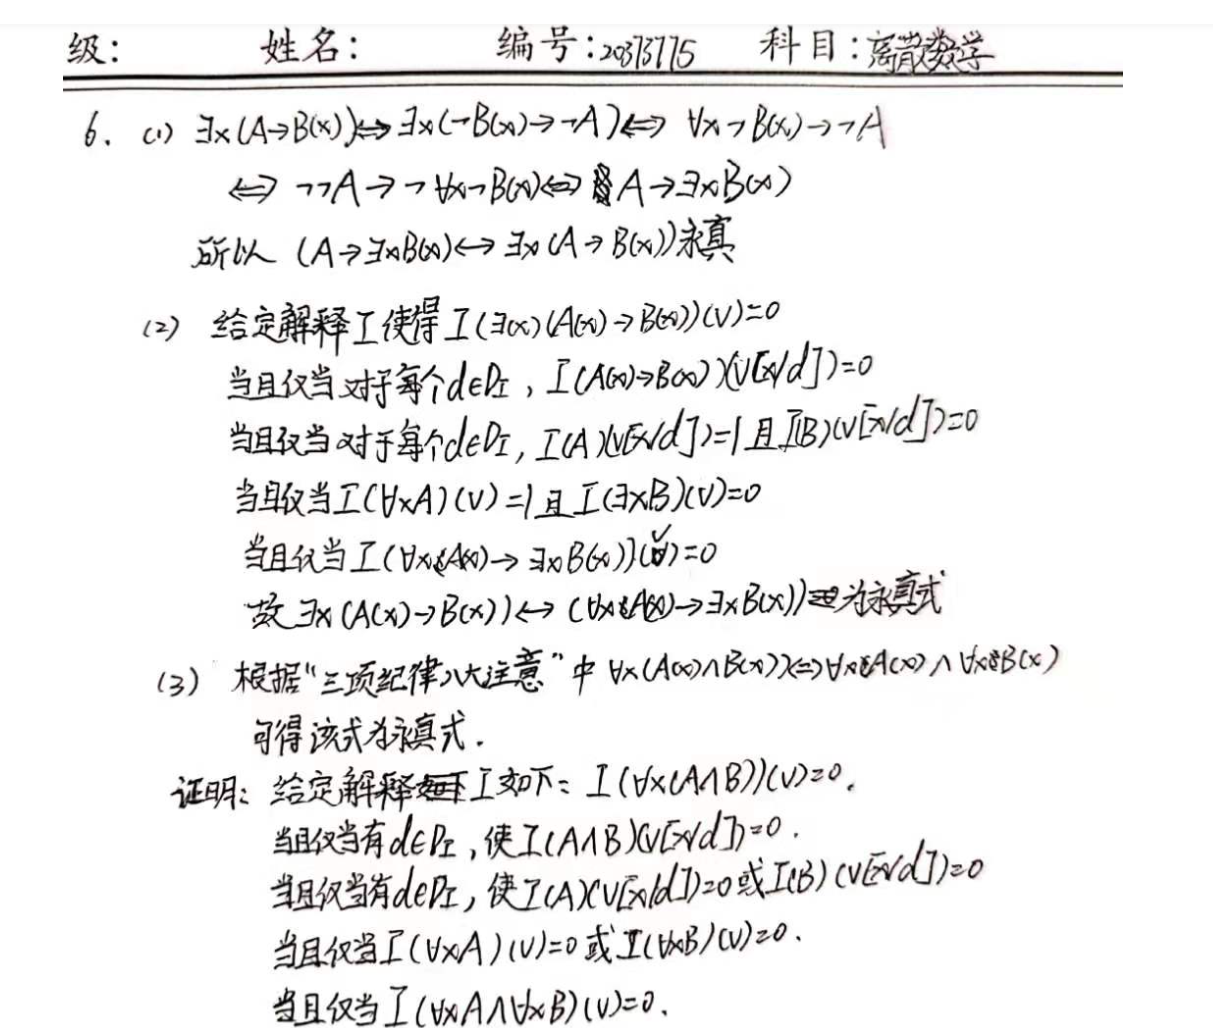 级： 姓名： 编号：20373775 科目：离散数学
6. (1) ∃x(A→B(x))⇔∃x(¬B(x)→¬A)⇔ ∀x¬B(x)→¬A
⇔ ¬¬A→¬∀x¬B(x)⇔ A→∃xB(x)
所以 (A→∃xB(x)↔∃x(A→B(x))永真
(2) 给定解释I使得I(∃(x)(A(x)→B(x))(v)=0
当且仅当对于每个d∈D_I，I(A(x)→B(x))(v[x/d])=0
当且仅当对于每个d∈D_I，I(A)(v[x/d])=1且I(B)(v[x/d])=0
当且仅当I(∀xA)(v)=1且I(∃xB)(v)=0
当且仅当I(∀xA(x)→∃xB(x))(v)=0
故∃x(A(x)→B(x))↔(∀xA(x)→∃xB(x))为永真式
(3) 根据“三项纪律八大注意”中∀x(A(x)∧B(x))⇔∀xA(x)∧∀xB(x)
可得该式为永真式.
证明：给定解释I如下：I(∀x(A∧B))(v)=0.
当且仅当有d∈D_I，使I(A∧B)(v[x/d])=0.
当且仅当有d∈D_I，使I(A)(v[x/d])=0或I(B)(v[x/d])=0
当且仅当I(∀xA)(v)=0或I(∀xB)(v)=0.
当且仅当I(∀xA∧∀xB)(v)=0.